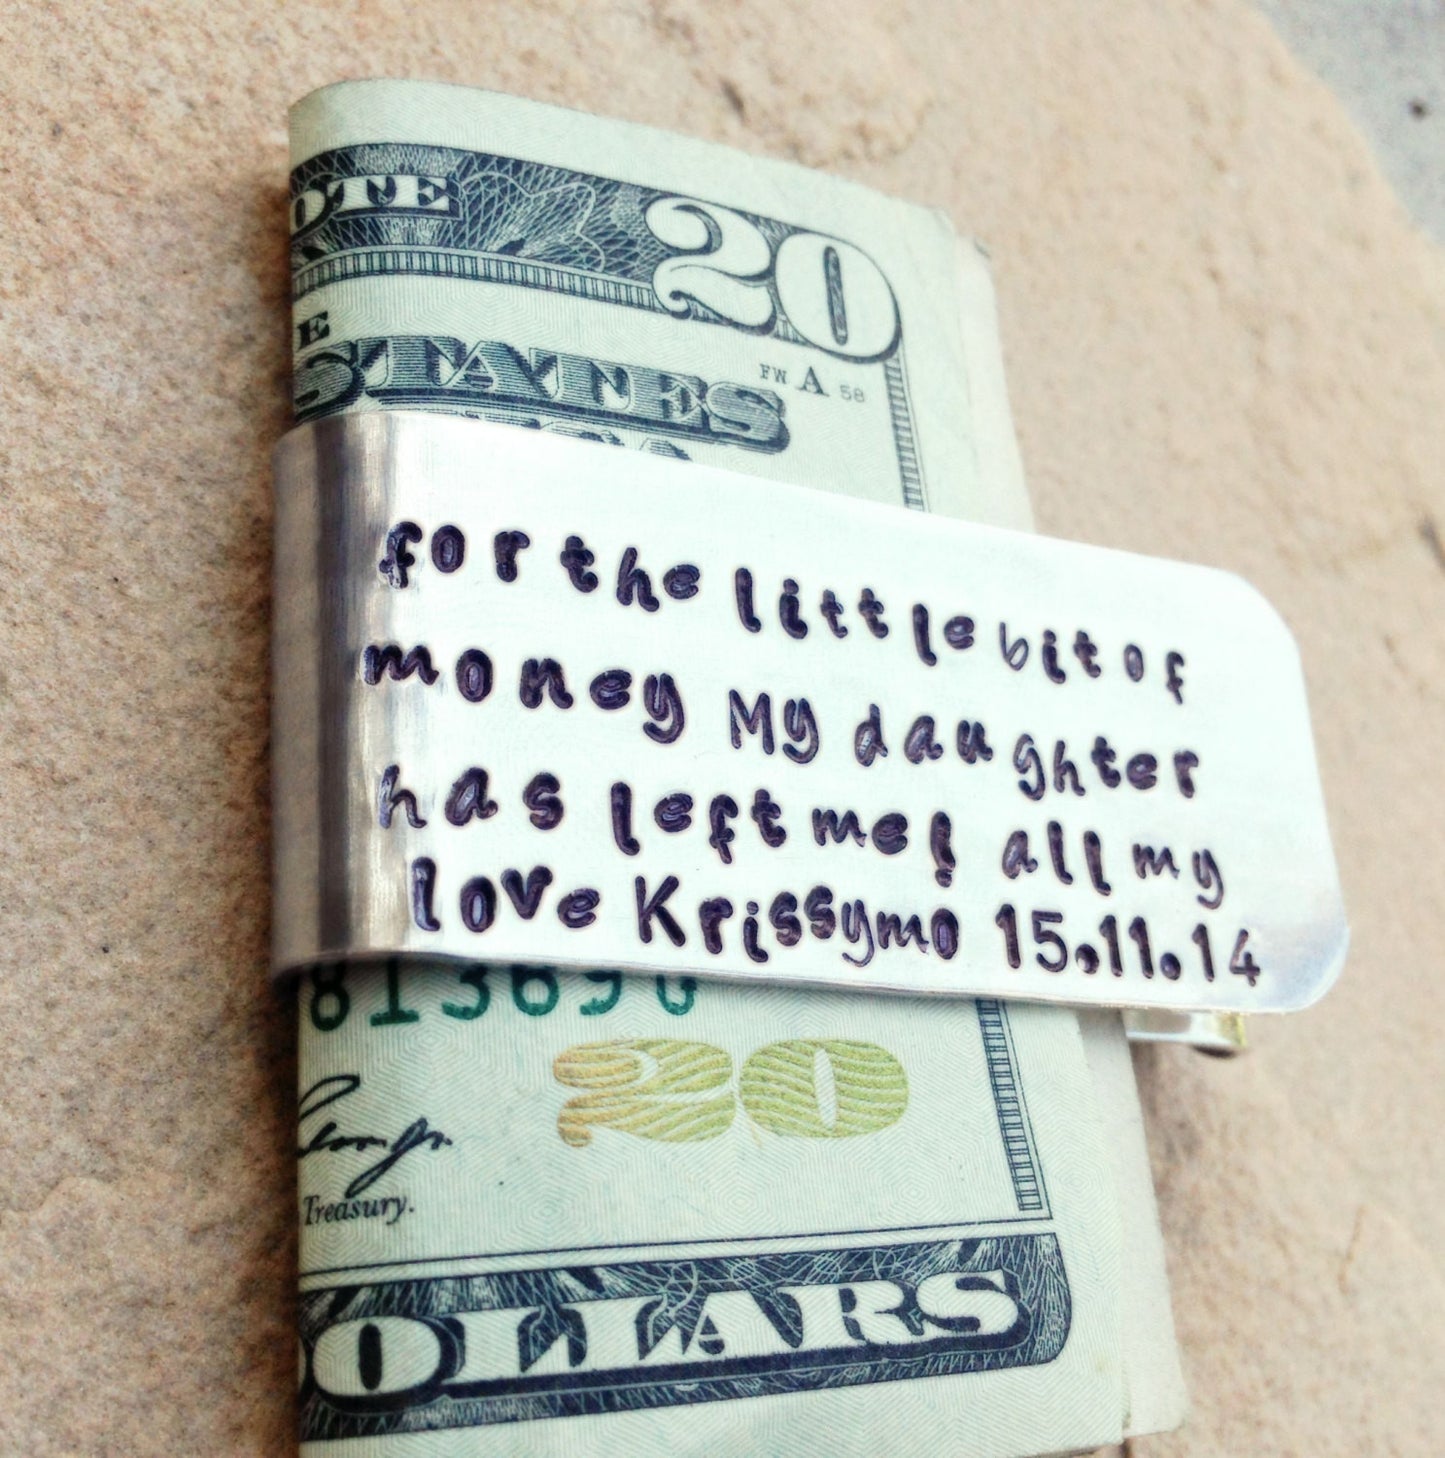 OTE
20
E
STATES
FW A 58
for the little bit of
money My daughter
has left me! all my
love Krissymo 15.11.14
81369G
20
Treasury.
OLLARS